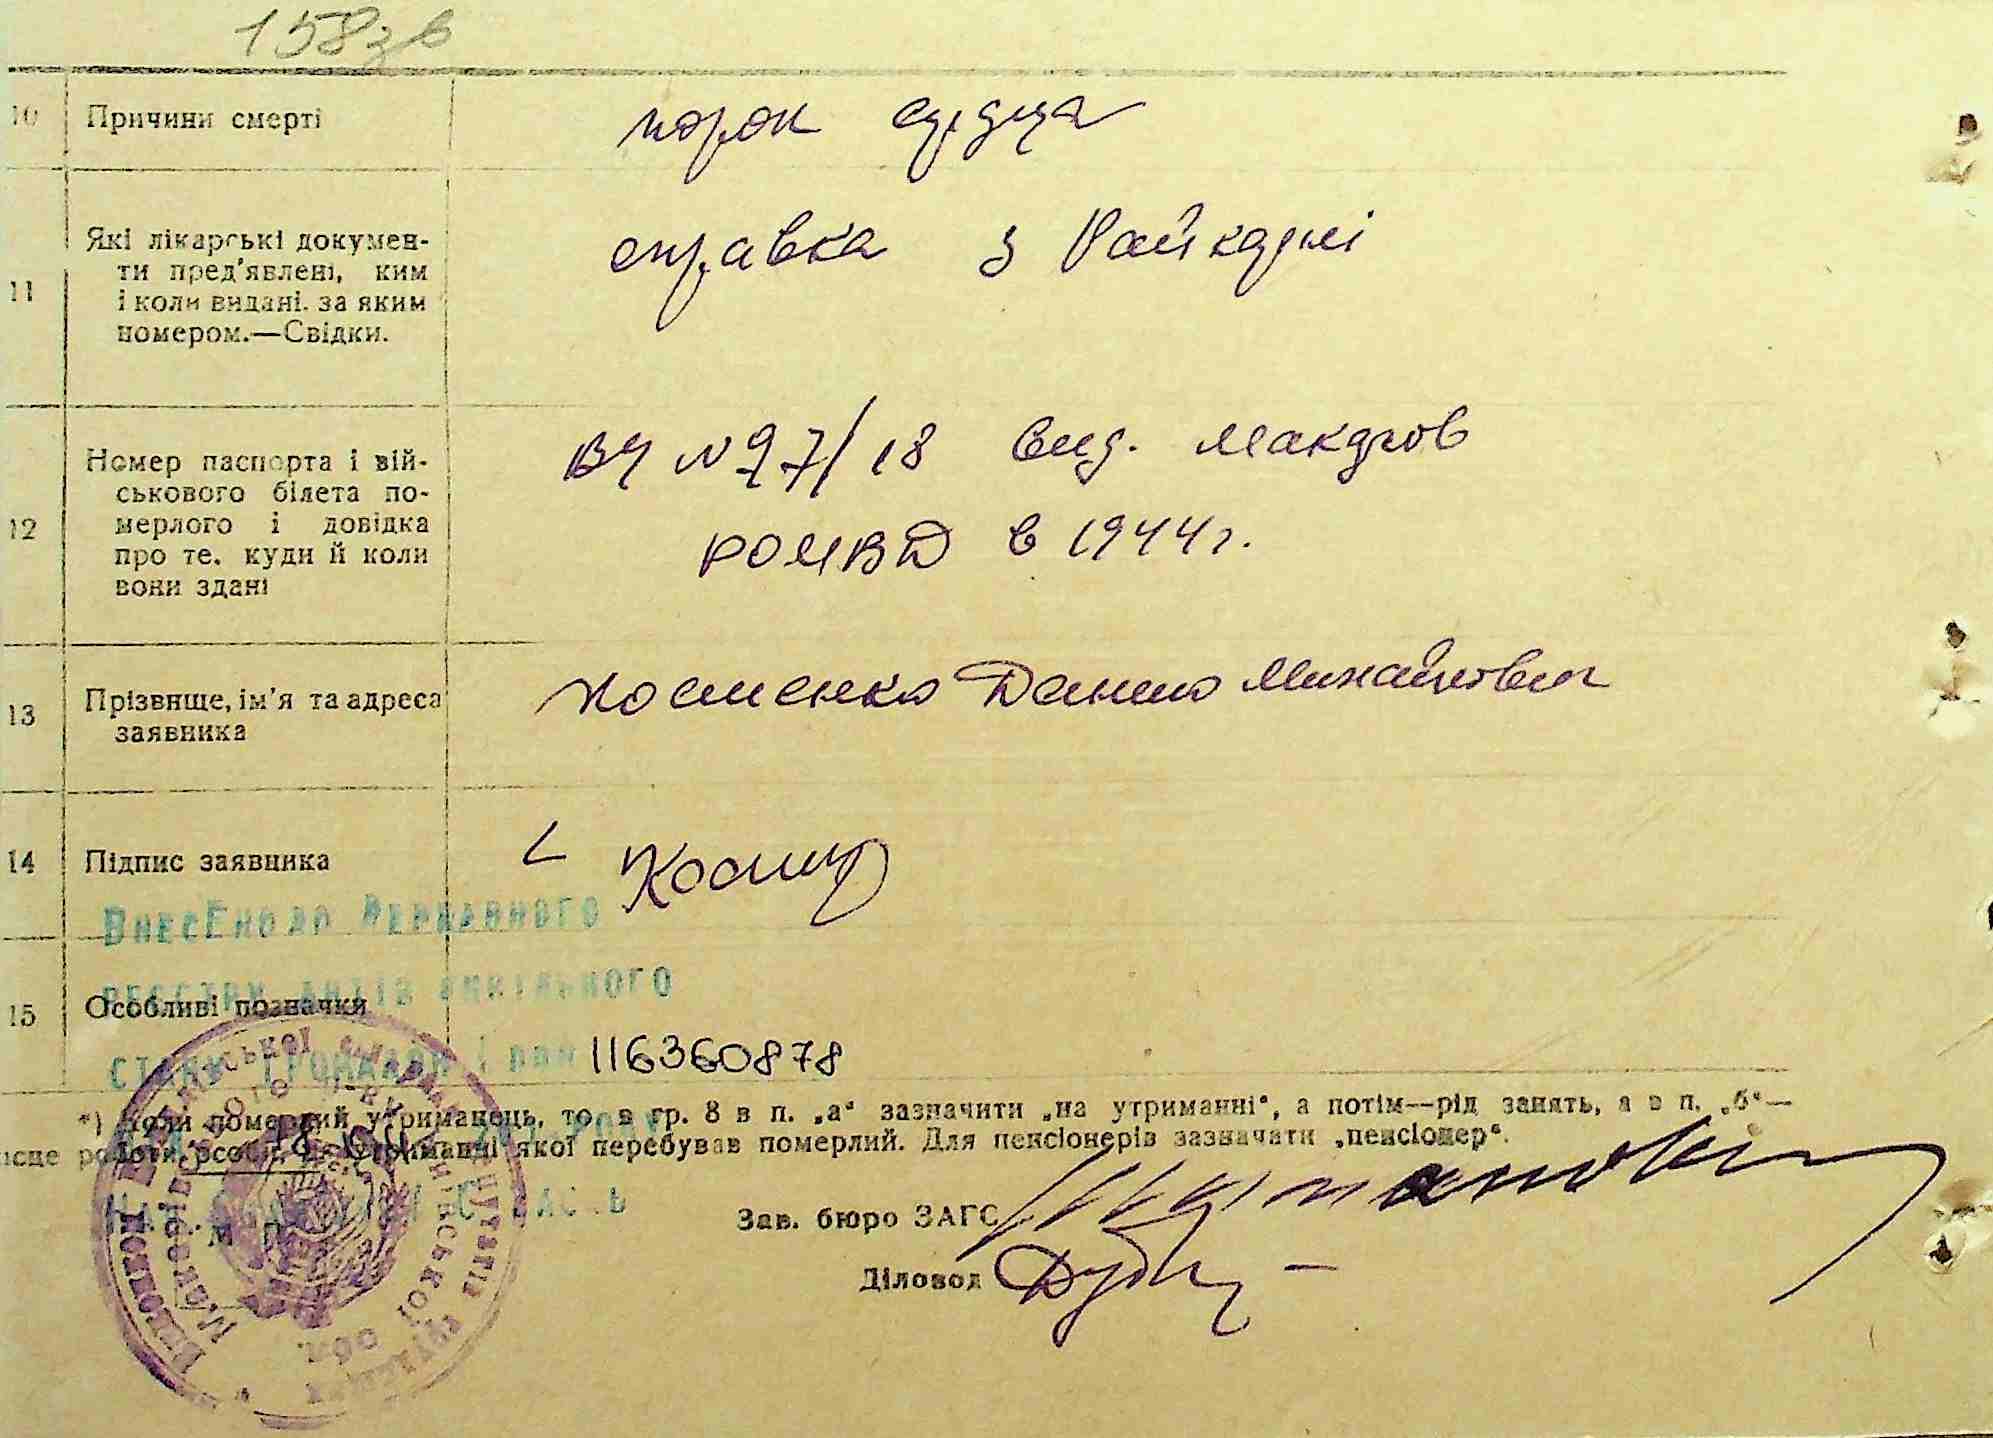 158зв
10 Причини смерті порок сердца
11 Які лікарські докумен-
ти пред'явлені, ким
і коли видані, за яким
номером.—Свідки.
справка з Райкармі
12 Номер паспорта і вій-
ськового білета по-
мерлого і довідка
про те, куди й коли
вони здані
N 27/18 вид. Макаров
РОМВД в 1944 г.
13 Прізвище, ім'я та адреса
заявника
Данило Михайлович
14 Підпис заявника
Внесено до Державного
реєстру актів цивільного
15 Особливі позначки
стану громадян і 116360878
*) Коли померлий утриманець, то в гр. 8 в п. „а" зазначити „на утриманні", а потім—рід занять, а в п. „б"—
ісце роботи особи, на утриманні якої перебував померлий. Для пенсіонерів зазначати „пенсіонер".
М. П.
Зав. бюро ЗАГС
Діловод